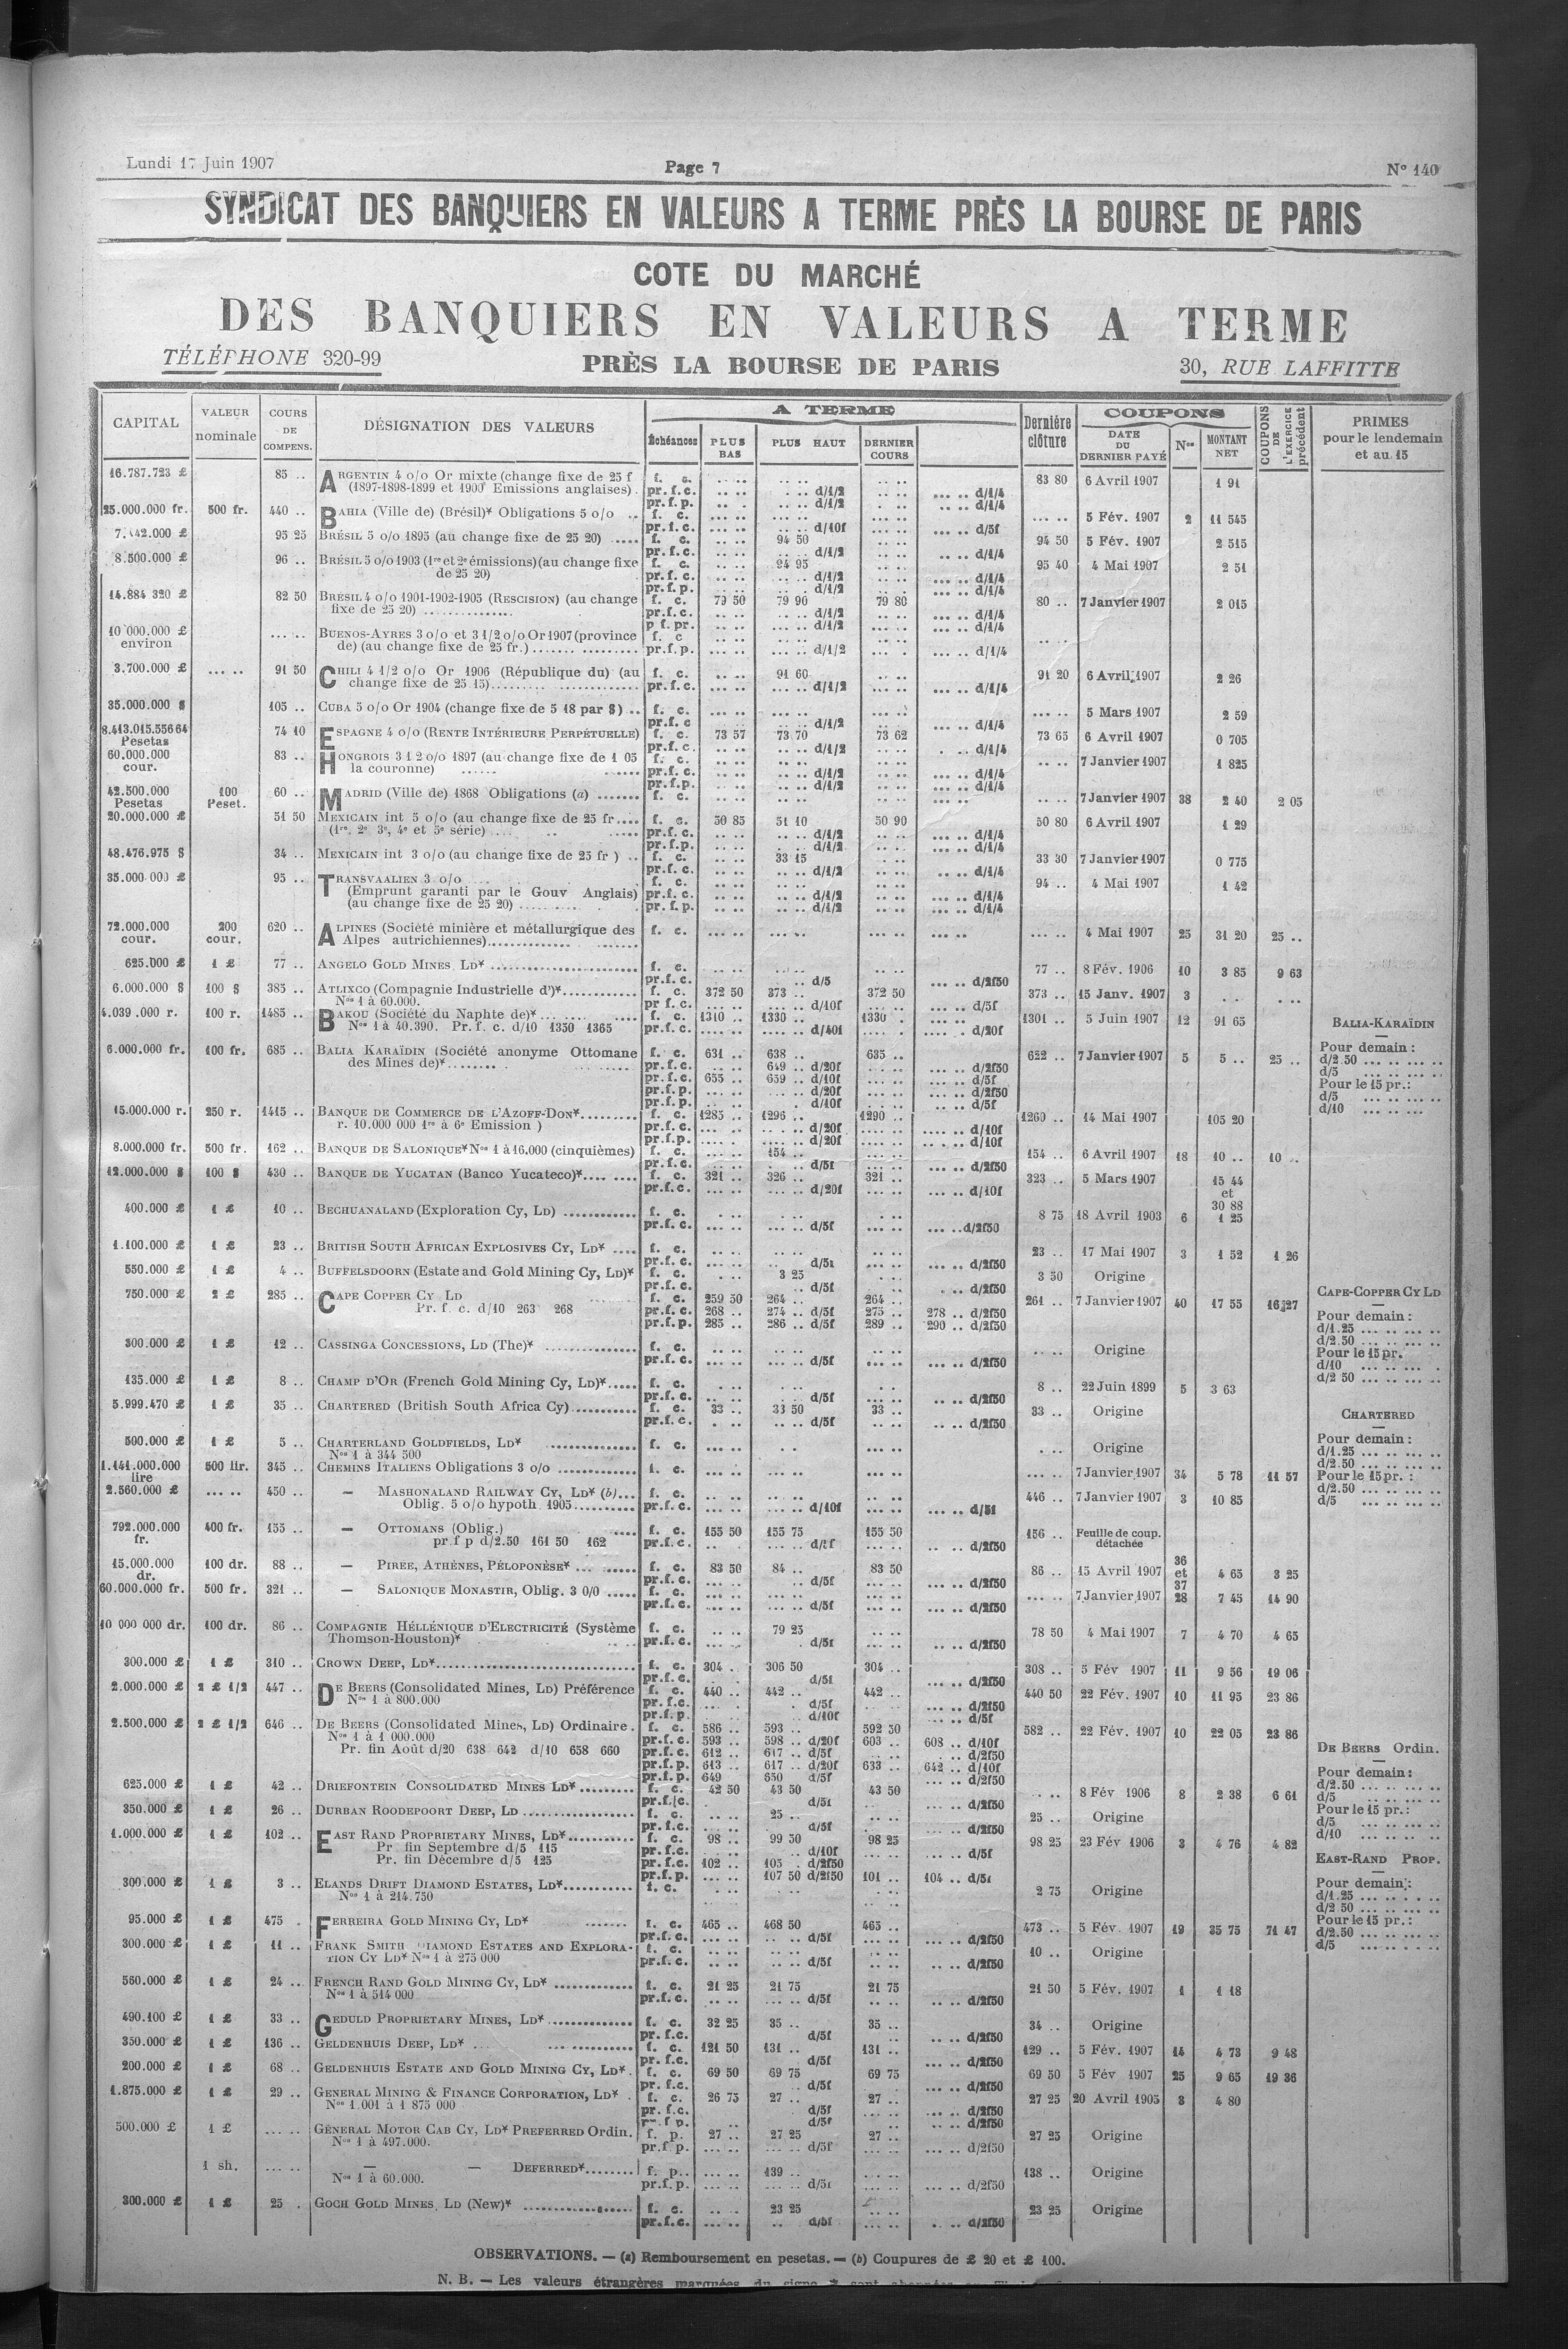 Lundi 17 Juin 1907 Page 7 N° 140
SYNDICAT DES BANQUIERS EN VALEURS A TERME PRÈS LA BOURSE DE PARIS
COTE DU MARCHÉ
DES BANQUIERS EN VALEURS A TERME
TÉLÉPHONE 320-99 PRÈS LA BOURSE DE PARIS 30, RUE LAFFITTE
CAPITAL VALEUR nominale COURS DE COMPENS. DÉSIGNATION DES VALEURS A TERME Échéances PLUS BAS PLUS HAUT DERNIER COURS Dernière clôture COUPONS DATE DU DERNIER PAYÉ Nos MONTANT NET COUPONS DE L'EXERCICE précédent PRIMES pour le lendemain et au 15
16.787.723 £ 85 .. ARGENTIN 4 o/o Or mixte (change fixe de 25 f f. c. 83 80 6 Avril 1907 1 91
(1897-1898-1899 et 1900 Emissions anglaises). pr. f. c. d/1/2 d/1/4
pr. f. p. d/1/2 d/1/4
25.000.000 fr. 500 fr. 440 .. BAHIA (Ville de) (Brésil)* Obligations 5 o/o f. c. 5 Fév. 1907 2 11 545
pr. f. c. d/10f d/5f
7.442.000 £ 95 25 BRÉSIL 5 o/o 1895 (au change fixe de 25 20) f. c. 94 50 94 50 5 Fév. 1907 2 515
pr. f. c. d/1/2 d/1/4
8.500.000 £ 96 .. BRÉSIL 5 o/o 1903 (1re et 2e émissions) (au change fixe f. c. 94 95 95 40 4 Mai 1907 2 51
de 25 20) pr. f. c. d/1/2 d/1/4
pr. f. p. d/1/2 d/1/4
14.884 320 £ 82 50 BRÉSIL 4 o/o 1901-1902-1905 (RESCISION) (au change f. c. 79 50 79 90 79 80 80 .. 7 Janvier 1907 2 015
fixe de 25 20) pr. f. c. d/1/2 d/1/4
p f. pr. d/1/2 d/1/4
10 000.000 £ environ BUENOS-AYRES 3 o/o et 3 1/2 o/o Or 1907 (province f. c
de) (au change fixe de 25 fr.) pr. f. p. d/1/2 d/1/4
3.700.000 £ 91 50 CHILI 4 1/2 o/o Or 1906 (République du) (au f. c. 91 60 91 20 6 Avril 1907 2 26
change fixe de 25 15) pr. f. c. d/1/2 d/1/4
35.000.000 $ 105 .. CUBA 5 o/o Or 1904 (change fixe de 5 18 par $) f. c. 5 Mars 1907 2 59
pr. f. c d/1/2 d/1/4
8.413.015.556 64 Pesetas 74 10 ESPAGNE 4 o/o (RENTE INTÉRIEURE PERPÉTUELLE) f. c. 73 57 73 70 73 62 73 65 6 Avril 1907 0 705
pr. f. c. d/1/2 d/1/4
60.000.000 cour. 83 .. HONGROIS 3 1 2 o/o 1897 (au change fixe de 1 05 f. c. 7 Janvier 1907 1 825
la couronne) pr. f. c. d/1/2 d/1/4
pr. f. p. d/1/2 d/1/4
42.500.000 Pesetas 100 Peset. 60 .. MADRID (Ville de) 1868 Obligations (a) f. c. 7 Janvier 1907 38 2 40 2 05
20.000.000 £ 51 50 MEXICAIN int 5 o/o (au change fixe de 25 fr. f. c. 50 85 51 10 50 90 50 80 6 Avril 1907 1 29
(1re, 2e 3e, 4e et 5e série) pr. f. c. d/1/2 d/1/4
pr. f. p. d/1/2 d/1/4
48.476.975 $ 34 .. MEXICAIN int 3 o/o (au change fixe de 25 fr ) f. c. 33 15 33 30 7 Janvier 1907 0 775
pr. f. c. d/1/2 d/1/4
35.000 000 £ 95 .. TRANSVAALIEN 3 o/o f. c. 94 .. 4 Mai 1907 1 42
(Emprunt garanti par le Gouv Anglais) pr. f. c. d/1/2 d/1/4
(au change fixe de 25 20) pr. f. p. d/1/2 d/1/4
72.000.000 cour. 200 cour. 620 .. ALPINES (Société minière et métallurgique des f. c. 4 Mai 1907 25 31 20 25 ..
Alpes autrichiennes)
625.000 £ 1 £ 77 .. ANGELO GOLD MINES LD* f. c. 77 .. 8 Fév. 1906 10 3 85 9 63
pr. f. c. d/5 d/2f50
6.000.000 $ 100 $ 385 .. ATLIXCO (Compagnie Industrielle d')* f. c. 372 50 373 .. 372 50 373 .. 15 Janv. 1907 3
Nos 1 à 60.000. pr f. c. d/10f d/5f
100 r. 1485 .. BAKOU (Société du Naphte de)* f. c. 1310 .. 1330 .. 1330 . 1301 .. 5 Juin 1907 12 91 65
Nos 1 à 40.390. Pr. f. c. d/10 1350 1365 pr. f. c. d/40f d/20f
BALIA-KARAÏDIN
6.000.000 fr. 100 fr. 685 .. BALIA KARAÏDIN (Société anonyme Ottomane f. c. 631 .. 638 .. 635 .. 622 .. 7 Janvier 1907 5 5 .. 25 .. Pour demain :
des Mines de)* pr. f. c. 649 .. d/20f d/2f50 d/2.50
pr. f. c. 655 .. 659 .. d/10f d/5f d/5
pr. f. p. d/20f d/2f50 Pour le 15 pr.:
pr. f. p. d/10f d/5f d/5
15.000.000 r. 250 r. 1415 .. BANQUE DE COMMERCE DE L'AZOFF-DON* f. c. 1285 .. 1296 .. 1290 .. 1260 .. 14 Mai 1907 105 20 d/10
r. 10.000 000 1re à 6e Emission ) pr. f. c. d/20f d/10f
pr. f. p. d/20f d/10f
8.000.000 fr. 500 fr. 162 .. BANQUE DE SALONIQUE* Nos 1 à 16.000 (cinquièmes) f. c. 154 .. 154 .. 6 Avril 1907 18 10 .. 10 ..
pr. f. c. d/5f d/2f50
12.000.000 $ 100 $ 430 .. BANQUE DE YUCATAN (Banco Yucateco)* f. c. 321 .. 326 .. 321 .. 323 .. 5 Mars 1907 15 44 et 30 88
pr. f. c. d/20f d/10f
400.000 £ 1 £ 10 .. BECHUANALAND (Exploration Cy, LD) f. c. 8 75 18 Avril 1903 6 1 25
pr. f. c. d/5f d/2f50
1.100.000 £ 1 £ 23 .. BRITISH SOUTH AFRICAN EXPLOSIVES CY, LD* f. c. 23 .. 17 Mai 1907 3 1 52 1 26
pr. f. c. d/5f d/2f50
550.000 £ 1 £ 4 .. BUFFELSDOORN (Estate and Gold Mining Cy, LD)* f. c. 3 25 3 50 Origine
pr. f. c. d/5f d/2f50
750.000 £ 2 £ 285 .. CAPE COPPER CY LD f. c. 259 50 264 .. 264 .. 261 .. 7 Janvier 1907 40 17 55 16 27 CAPE-COPPER CY LD
Pr. f. c. d/10 263 268 pr. f. c. 268 .. 274 .. d/5f 275 .. 278 .. d/2f50 Pour demain :
pr. f. p. 285 .. 286 .. d/5f 289 .. 290 .. d/2f50 d/1.25
d/2.50
300.000 £ 1 £ 12 .. CASSINGA CONCESSIONS, LD (The)* f. c. Origine Pour le 15 pr.
pr. f. c. d/5f d/2f50 d/10
135.000 £ 1 £ 8 .. CHAMP D'OR (French Gold Mining Cy, LD)* f. c. 8 .. 22 Juin 1899 5 3 63 d/2 50
pr. f. c. d/5f d/2f50
5.999.470 £ 1 £ 35 .. CHARTERED (British South Africa Cy) f. c. 33 .. 33 50 33 .. 33 .. Origine CHARTERED
pr. f. c. d/5f d/2f50
500.000 £ 1 £ 5 .. CHARTERLAND GOLDFIELDS, LD* f. c. Origine Pour demain :
Nos 1 à 344 500 d/1.25
d/2.50
1.141.000.000 lire 500 lir. 345 .. CHEMINS ITALIENS Obligations 3 o/o f. c. 7 Janvier 1907 34 5 78 11 57 Pour le 15 pr. :
2.560.000 £ 450 .. — MASHONALAND RAILWAY CY, LD* (b) f. c. 446 .. 7 Janvier 1907 3 10 85 d/2.50
Oblig. 5 o/o hypoth. 1905 pr. f. c. d/10f d/5f d/5
792.000.000 fr. 400 fr. 155 .. — OTTOMANS (Oblig.) f. c. 155 50 155 75 155 50 156 .. Feuille de coup. détachée
pr f p d/2.50 161 50 162 pr. f. c. d/2f50
15.000.000 dr. 100 dr. 88 .. — PIREE, ATHÈNES, PÉLOPONÈSE* f. c. 83 50 84 .. 83 50 86 .. 15 Avril 1907 36 et 37 4 65 3 25
pr. f. c. d/5f d/2f50
60.000.000 fr. 500 fr. 321 .. — SALONIQUE MONASTIR, Oblig. 3 0/0 f. c. 7 Janvier 1907 28 7 45 14 90
pr. f. c. d/5f d/2f50
10 000 000 dr. 100 dr. 86 .. COMPAGNIE HÉLLÉNIQUE D'ELECTRICITÉ (Système f. c. 79 25 78 50 4 Mai 1907 7 4 70 4 65
Thomson-Houston)* pr. f. c. d/5f d/2f50
300.000 £ 1 £ 310 .. CROWN DEEP, LD* f. c. 304 . 306 50 304 .. 308 .. 5 Fév 1907 11 9 56 19 06
pr. f. c. d/5f d/2f50
2.000.000 £ 2 £ 1/2 447 .. DE BEERS (Consolidated Mines, LD) Préférence f. c. 440 .. 442 .. 442 .. 440 50 22 Fév. 1907 10 11 95 23 86
Nos 1 à 800.000 pr. f. c. d/5f d/2f50
pr. f. p. d/10f d/5f
2.500.000 £ 2 £ 1/2 646 .. DE BEERS (Consolidated Mines, LD) Ordinaire. f. c. 586 .. 593 .. 592 50 582 .. 22 Fév. 1907 10 22 05 23 86
Nos 1 à 1 000.000 pr. f. c. 593 .. 598 .. d/20f 603 .. 608 .. d/10f DE BEERS Ordin.
Pr. fin Août d/20 638 642 d/10 658 660 pr. f. c. 612 .. 617 .. d/5f d/2f50
pr. f. p. 613 .. 617 .. d/20f 633 .. 642 .. d/10f Pour demain :
pr. f. p. 649 650 d/5f d/2f50 d/2.50
625.000 £ 1 £ 42 .. DRIEFONTEIN CONSOLIDATED MINES LD* f. c. 42 50 43 50 43 50 8 Fév 1906 8 2 38 6 61 d/5
pr. f. c. d/5f d/2f50 Pour le 15 pr. :
350.000 £ 1 £ 26 .. DURBAN ROODEPOORT DEEP, LD f. c. 25 .. 25 .. Origine d/5
pr. f. c. d/5f d/2f50 d/10
1.000.000 £ 1 £ 102 .. EAST RAND PROPRIETARY MINES, LD* f. c. 98 .. 99 50 98 25 98 25 23 Fév 1906 3 4 76 4 82
Pr fin Septembre d/5 115 pr. f. c. d/10f d/5f EAST-RAND PROP.
Pr. fin Décembre d/5 125 pr. f. c. 102 .. 105 . d/2f50
pr. f. p. 107 50 d/2f50 101 .. 104 .. d/5f Pour demain :
300.000 £ 1 £ 3 .. ELANDS DRIFT DIAMOND ESTATES, LD* f. c. 2 75 Origine d/1.25
Nos 1 à 214.750 d/2 50
95.000 £ 1 £ 475 . FERREIRA GOLD MINING CY, LD* f. c. 465 .. 468 50 465 .. 473 .. 5 Fév. 1907 19 35 75 71 47 Pour le 15 pr. :
pr. f. c. d/5f d/2f50 d/2.50
300.000 £ 1 £ 11 .. FRANK SMITH DIAMOND ESTATES AND EXPLORA- f. c. 10 .. Origine d/5
TION CY LD* Nos 1 à 275 000 pr. f. c. d/5f d/2f50
560.000 £ 1 £ 24 .. FRENCH RAND GOLD MINING CY, LD* f. c. 21 25 21 75 21 75 21 50 5 Fév. 1907 1 1 18
Nos 1 à 514 000 pr. f. c. d/5f d/2f50
490.100 £ 1 £ 33 .. GEDULD PROPRIETARY MINES, LD* f. c. 32 25 35 .. 35 .. 34 .. Origine
pr. f. c. d/5f d/2f50
350.000 £ 1 £ 136 .. GELDENHUIS DEEP, LD* f. c. 121 50 131 .. 131 .. 129 .. 5 Fév. 1907 14 4 73 9 48
pr. f. c. d/5f d/2f50
200.000 £ 1 £ 68 .. GELDENHUIS ESTATE AND GOLD MINING CY, LD* f. c. 69 50 69 75 69 75 69 50 5 Fév 1907 25 9 65 19 36
pr. f. c. d/5f d/2f50
1.875.000 £ 1 £ 29 .. GENERAL MINING & FINANCE CORPORATION, LD* f. c. 26 75 27 .. 27 .. 27 25 20 Avril 1905 3 4 80
Nos 1.001 à 1 875 000 pr. f. c. d/5f d/2f50
pr. f p. d/5f d/2f50
500.000 £ 1 £ GENERAL MOTOR CAB CY, LD* PREFERRED Ordin. f. p. 27 .. 27 25 27 .. 27 25 Origine
Nos 1 à 497.000. pr. f p. d/5f d/2f50
1 sh. — — DEFERRED* f. p. 139 .. 138 .. Origine
Nos 1 à 60.000. pr. f. p. d/5f d/2f50
300.000 £ 1 £ 25 . GOCH GOLD MINES LD (New)* f. c. 23 25 23 25 Origine
pr. f. c. d/5f d/2f50
OBSERVATIONS. — (a) Remboursement en pesetas. — (b) Coupures de £ 20 et £ 100.
N. B. — Les valeurs étrangères marquées du signe * sont